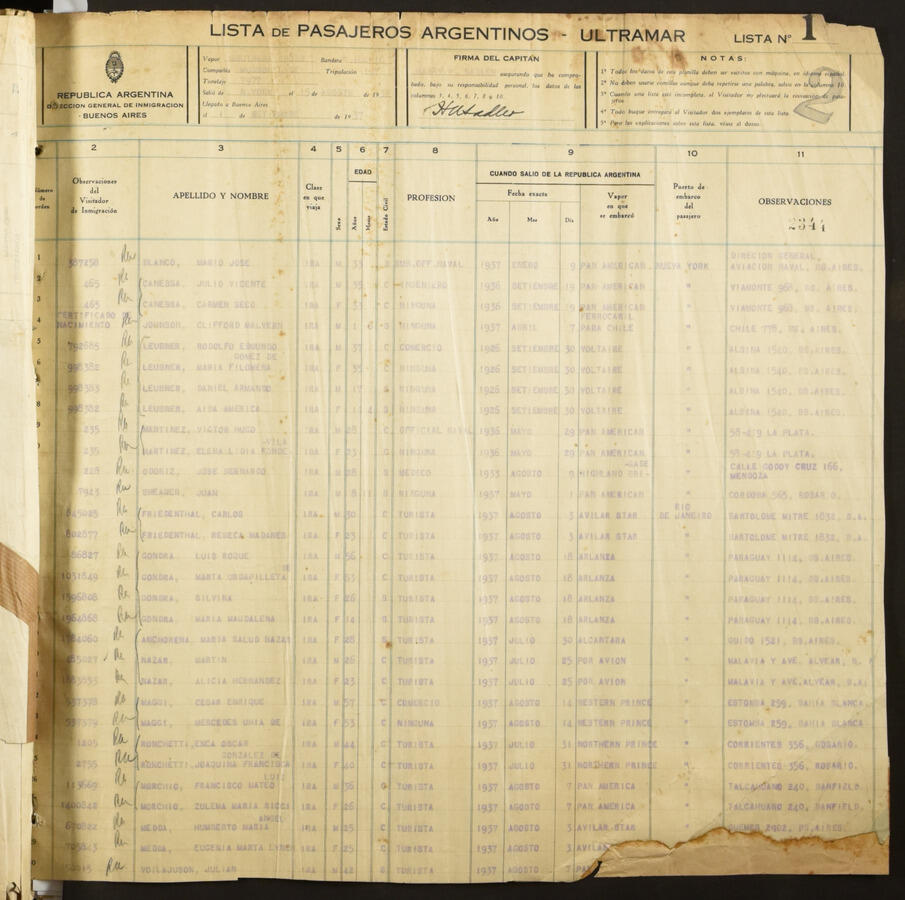 LISTA DE PASAJEROS ARGENTINOS - ULTRAMAR
LISTA Nº 1
2
REPUBLICA ARGENTINA
DIRECCION GENERAL DE INMIGRACION
BUENOS AIRES
Vapor
Bandera
Compañia
Tripulación
Tonelaje
Salió de
de 19
Llegado a Buenos Aires
el
de 1937
FIRMA DEL CAPITÁN
asegurando que ha compro-
bado, bajo su responsabilidad personal, los datos de las
columnas 3, 4, 5, 6, 7, 8 y 10.
NOTAS:
1ª Todos los datos de esta planilla deben ser escritos con máquina, en idioma español.
4ª Todo buque entregará al Visitador dos ejemplares de esta lista.
5ª Para las explicaciones sobre esta lista, véase al dorso.
2 3 4 5 6 7 8 9 10 11
Número de orden
Observaciones del Visitador de Inmigración
APELLIDO Y NOMBRE
Clase en que viaja
Sexo
EDAD
Años
Meses
Estado Civil
PROFESION
CUANDO SALIO DE LA REPUBLICA ARGENTINA
Fecha exacta
Año
Mes
Día
Vapor en que se embarcó
Puerto de embarco del pasajero
OBSERVACIONES
2944
387258 BLANCO, MARIO JOSE 1RA M 33 SUB.OFF.NAVAL 1937 ENERO 9 PAN AMERICAN NUEVA YORK DIRECION GENERAL, AVIACION NAVAL, BS.AIRES.
465 CANESSA, JULIO VICENTE 1RA M 35 C INGENIERO 1936 SETIEMBRE 19 PAN AMERICAN " VIAMONTE 968, BS. AIRES.
465 CANESSA, CARMEN SECO 1RA F 31 C NINGUNA 1936 SETIEMBRE 19 PAN AMERICAN " VIAMONTE 968, BS. AIRES.
CERTIFICADO DE NACIMIENTO JOHNSON, CLIFFORD MALVERN 1RA M 1 6 S NINGUNA 1937 ABRIL 7 FERROCARIL PARA CHILE " CHILE 778, BS. AIRES.
792685 LEUBNER, RODOLFO EDMUNDO 1RA M 37 C COMERCIO 1926 SETIEMBRE 30 VOLTAIRE " ALSINA 1540, BS.AIRES.
998382 LEUBNER, MARIA FILOMENA GOMEZ DE 1RA F 35 C NINGUNA 1926 SETIEMBRE 30 VOLTAIRE " ALSINA 1540, BS.AIRES.
998383 LEUBNER, DANIEL ARMANDO 1RA M 17 S NINGUNA 1926 SETIEMBRE 30 VOLTAIRE " ALSINA 1540, BS.AIRES.
998382 LEUBNER, AIDA AMERICA 1RA F 4 S NINGUNA 1926 SETIEMBRE 30 VOLTAIRE " ALSINA 1540, BS.AIRES.
235 MARTINEZ, VICTOR HUGO 1RA M 28 C OFFICIAL NAVAL 1936 MAYO 29 PAN AMERICAN " 58-419 LA PLATA.
235 MARTINEZ, ELENA LIDIA CONDE -VILA 1RA F 23 C NINGUNA 1936 MAYO 29 PAN AMERICAN " 58-419 LA PLATA.
228 GODRIZ, JOSE BERNARDO 1RA M 28 S MEDICO 1933 AGOSTO 9 HIGHLAND BRI- " CALLE GODOY CRUZ 166, MENDOZA
7943 SHEARER, JUAN 1RA M 8 11 S NINGUNA 1937 MAYO 1 PAN AMERICAN " CORDOBA 565, ROSARIO.
FRIEDENTHAL, CARLOS 1RA M 30 C TURISTA 1937 AGOSTO 3 AVILAR STAR RIO DE JANEIRO BARTOLOME MITRE 1832, B.A.
802877 FRIEDENTHAL, REBECA MADANES 1RA F 23 C TURISTA 1937 AGOSTO 3 AVILAR STAR " BARTOLOME MITRE 1832, B.A.
86827 GONDRA, LUIS ROQUE 1RA M 56 C TURISTA 1937 AGOSTO 18 ARLANZA " PARAGUAY 1114, BS.AIRES.
1031849 GONDRA, MARTA URDAPILLETA DE 1RA F 53 C TURISTA 1937 AGOSTO 18 ARLANZA " PARAGUAY 1114, BS.AIRES.
1596808 GONDRA, SILVINA 1RA F 26 S TURISTA 1937 AGOSTO 18 ARLANZA " PARAGUAY 1114, BS.AIRES.
1964868 GONDRA, MARIA MAGDALENA 1RA F 14 S TURISTA 1937 AGOSTO 18 ARLANZA " PARAGUAY 1114, BS.AIRES.
ANCHORENA, MARIA SALUD NAZAR 1RA F 28 TURISTA 1937 JULIO 30 ALCANTARA " GUIDO 1521, BS.AIRES.
NAZAR, MARTIN 1RA M 26 C TURISTA 1937 JULIO 25 POR AVION " MALAVIA Y AVE. ALVEAR, B.
NAZAR, ALICIA HERNANDEZ 1RA F 23 C TURISTA 1937 JULIO 25 POR AVION " MALAVIA Y AVE.ALVEAR, B.A.
537378 MAGGI, CESAR ENRIQUE 1RA M 57 C COMERCIO 1937 AGOSTO 14 WESTERN PRINCE " ESTOMBA 259, BAHIA BLANCA
537379 MAGGI, MERCEDES URIA DE 1RA F 53 C NINGUNA 1937 AGOSTO 14 WESTERN PRINCE " ESTOMBA 259, BAHIA BLANCA
1205 RONCHETTI, OSCAR 1RA M 44 C TURISTA 1937 JULIO 31 NORTHERN PRINCE " CORRIENTES 356, ROSARIO.
2755 RONCHETTI, JOAQUINA FRANCISCA GONZALEZ DE 1RA F 40 C TURISTA 1937 JULIO 31 NORTHERN PRINCE " CORRIENTES 356, ROSARIO.
113669 MORCHIO, FRANCISCO MATEO LUIS 1RA M 36 TURISTA 1937 AGOSTO 7 PAN AMERICA " TALCAHUANO 240, BANFIELD.
1400848 MORCHIO, ZULEMA MARIA RICCI 1RA F 26 C TURISTA 1937 AGOSTO 7 PAN AMERICA " TALCAHUANO 240, BANFIELD.
670822 MEDDA, HUMBERTO MARIA ANGEL 1RA M 25 C TURISTA 1937 AGOSTO 3 AVILAR STAR " GUEMES 2902, BS.AIRES.
MEDDA, EUGENIA MARTA 1RA F 25 C TURISTA 1937 AGOSTO 3 AVILA
JULIAN 1RA M 42 S TURISTA 1937 AGOSTO 7 PA